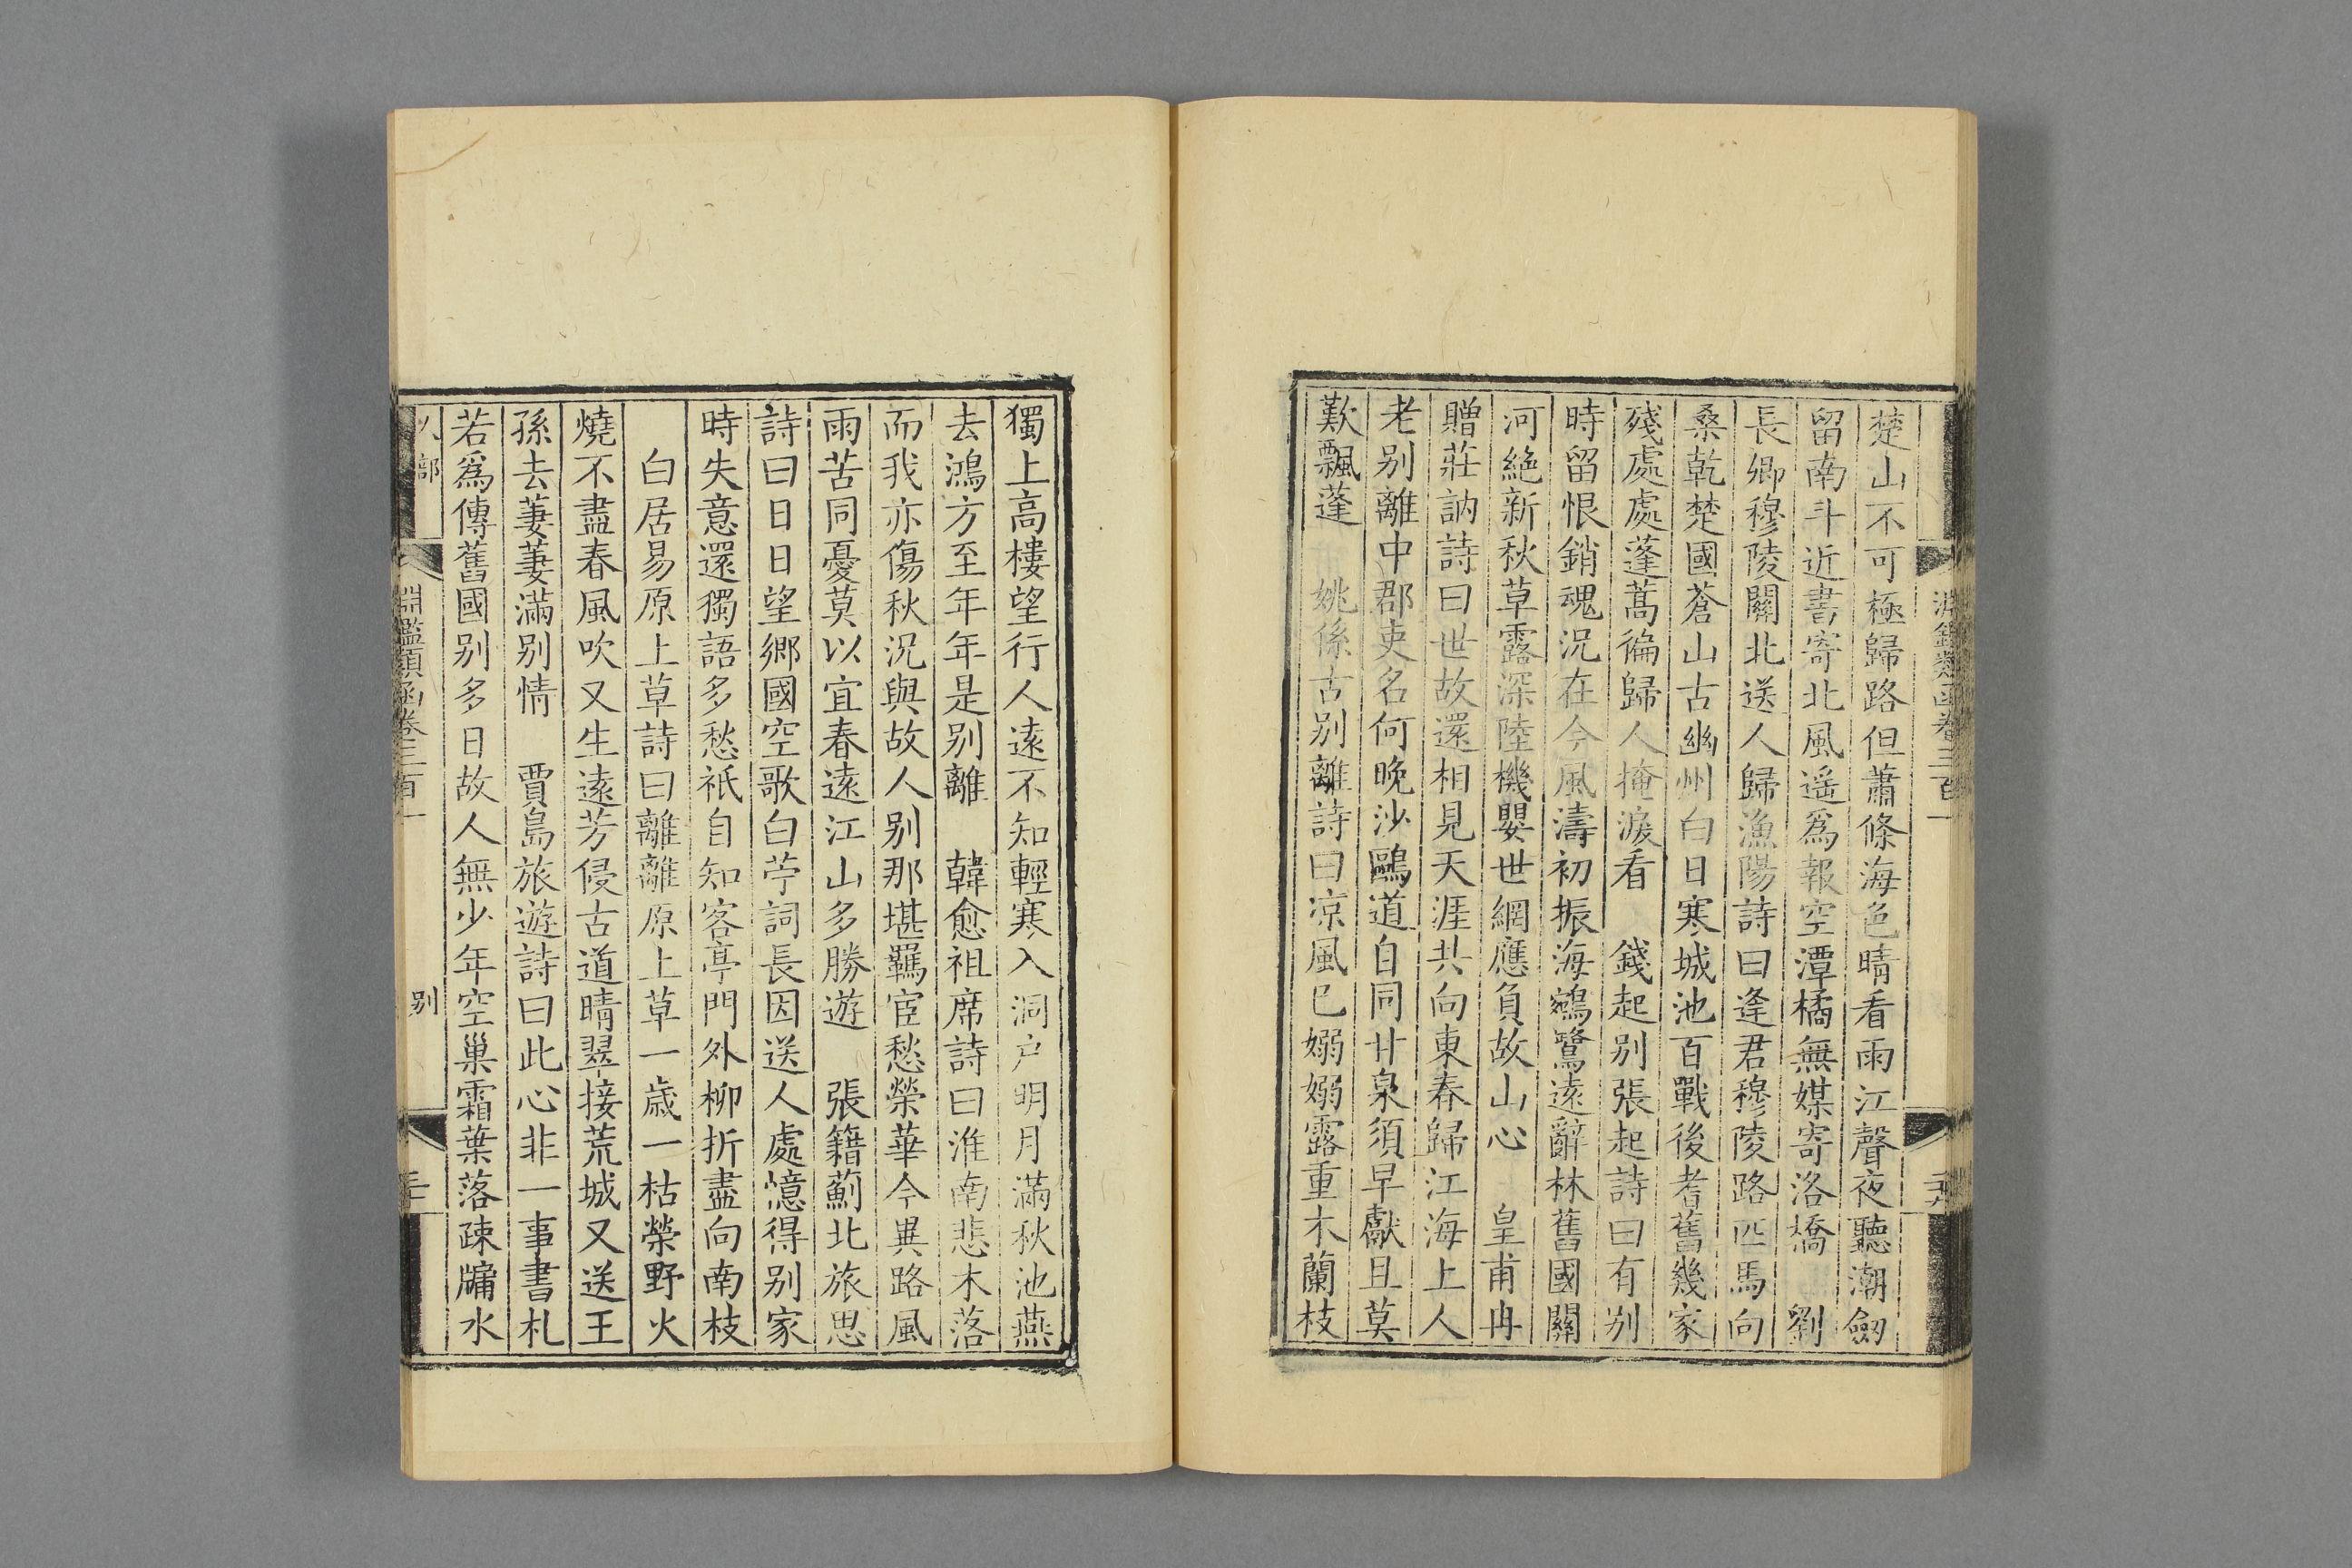 楚山不可極歸路但蕭條海色晴看雨江聲夜聽潮劒
留南斗近書寄北風遥爲報空潭橘無媒寄洛橋　劉
長卿穆陵關北送人歸漁陽詩曰逢君穆陵路匹馬向
桑乾楚國蒼山古幽州白日寒城池百戰後耆舊幾家
殘處處蓬蒿徧歸人掩淚看　錢起别張起詩曰有别
時留恨銷魂況在今風濤初振海鵷鷺遠辭林舊國關
河絶新秋草露深陸機嬰世網應負故山心　皇甫冉
贈莊訥詩曰世故還相見天涯共向東春歸江海上人
老别離中郡吏名何晚沙鷗道自同甘泉須早獻且莫
歎飄蓬　姚係古别離詩曰凉風已嫋嫋露重木蘭枝
淵鑑類函卷三百一
獨上高樓望行人遠不知輕寒入洞户明月滿秋池燕
去鴻方至年年是别離　韓愈祖席詩曰淮南悲木落
而我亦傷秋況與故人别那堪羈宦愁榮華今異路風
雨苦同憂莫以宜春遠江山多勝遊　張籍薊北旅思
詩曰日日望鄉國空歌白苧詞長因送人處憶得别家
時失意還獨語多愁祇自知客亭門外柳折盡向南枝
白居易原上草詩曰離離原上草一歲一枯榮野火
燒不盡春風吹又生遠芳侵古道晴翠接荒城又送王
孫去萋萋滿别情　賈島旅遊詩曰此心非一事書札
若爲傳舊國别多日故人無少年空巢霜葉落疎牖水
淵鑑類函卷三百一
别